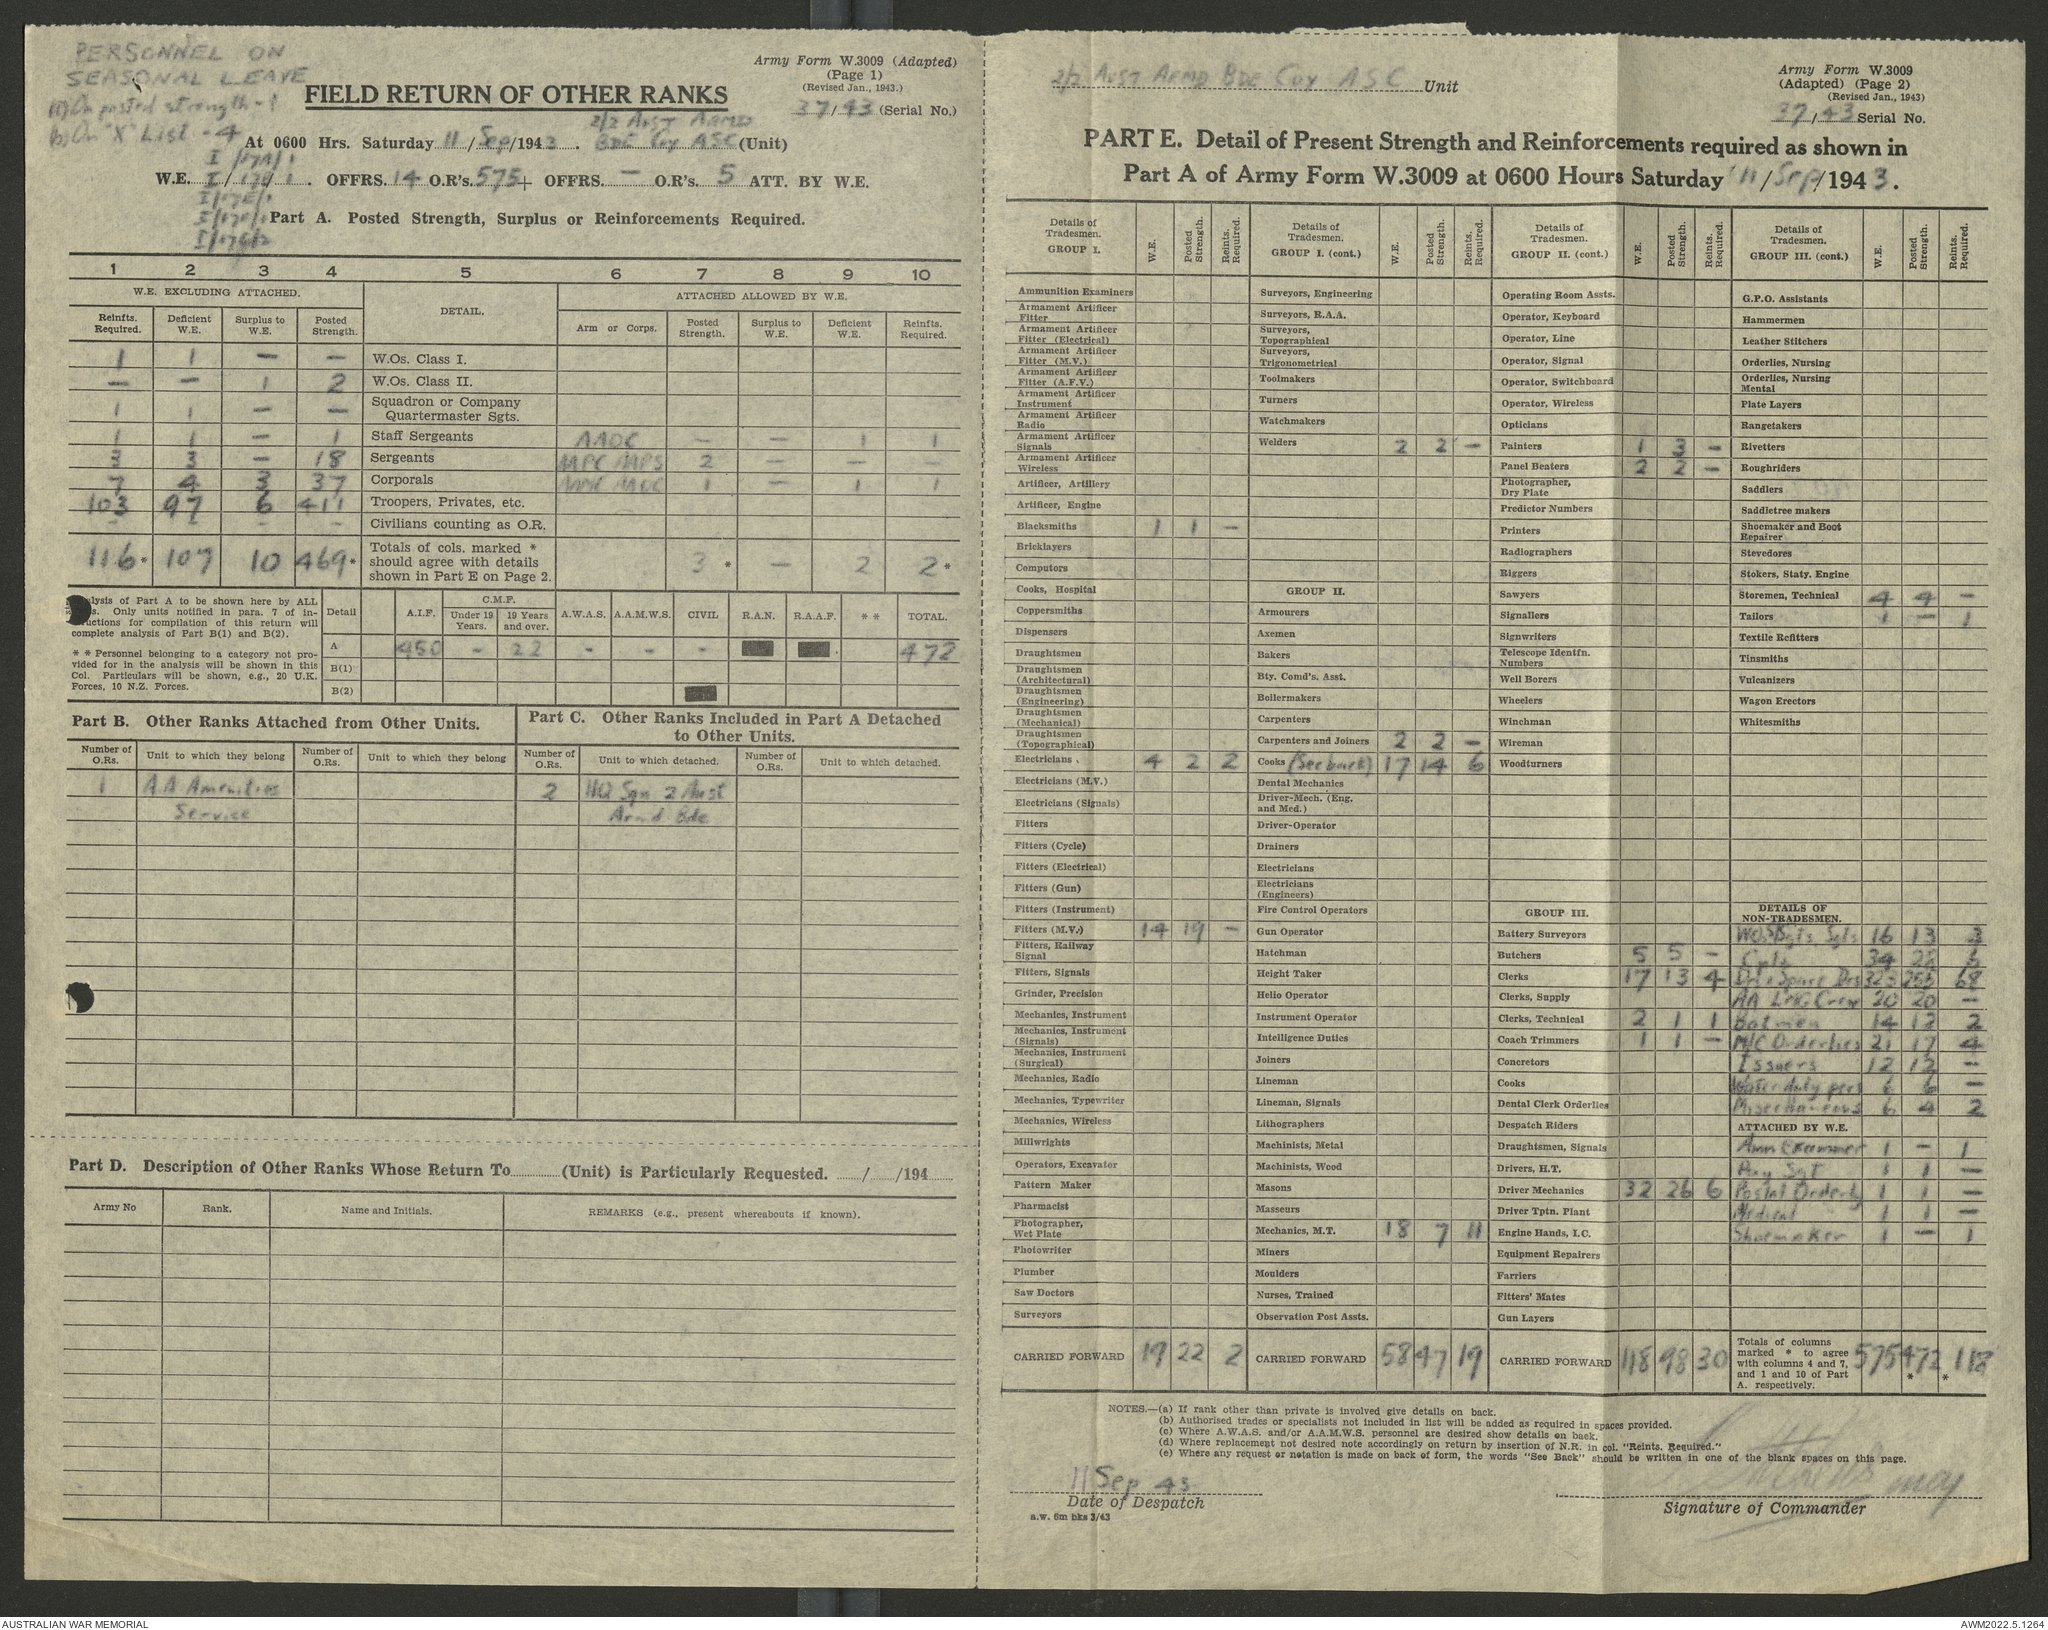 PERSONNEL ON
SEASONAL LEAVE
(a) On posted strength - 1
(b) On "X" List - 4
Army Form W.3009 (Adapted)
(Page 1)
(Revised Jan., 1943.)
37/43 (Serial No.)
FIELD RETURN OF OTHER RANKS
2/2 AUST ARMD
At 0600 Hrs. Saturday 11/Sep/1943. BDE COY ASC (Unit)
W.E. OFFRS. 14 O.R's. 575 + OFFRS. — O.R's. 5 ATT. BY W.E.
Part A. Posted Strength, Surplus or Reinforcements Required.
1 2 3 4 5 6 7 8 9 10
W.E. EXCLUDING ATTACHED. DETAIL. ATTACHED ALLOWED BY W.E.
Reinfts. Required. Deficient W.E. Surplus to W.E. Posted Strength. Arm or Corps. Posted Strength. Surplus to W.E. Deficient W.E. Reinfts. Required.
1 1 — — W.Os. Class I.
— — 1 2 W.Os. Class II.
1 1 — — Squadron or Company Quartermaster Sgts.
1 1 — 1 Staff Sergeants AAOC — — 1 1
3 3 — 18 Sergeants AAPC AAPS 2 — — —
7 4 3 37 Corporals AAMC AAOC 1 — 1 1
103 97 6 411 Troopers, Privates, etc.
- - - - Civilians counting as O.R.
116* 107 10 469* Totals of cols. marked * should agree with details shown in Part E on Page 2. 3* — 2 2*
alysis of Part A to be shown here by ALL
s. Only units notified in para. 7 of in-
ructions for compilation of this return will
complete analysis of Part B(1) and B(2).
** Personnel belonging to a category not pro-
vided for in the analysis will be shown in this
Col. Particulars will be shown, e.g., 20 U.K.
Forces, 10 N.Z. Forces.
Detail A.I.F. C.M.F. Under 19 Years. 19 Years and over. A.W.A.S. A.A.M.W.S. CIVIL R.A.N. R.A.A.F. ** TOTAL.
A 450 - 22 - - - 472
B(1)
B(2)
Part B. Other Ranks Attached from Other Units.
Number of O.Rs. Unit to which they belong Number of O.Rs. Unit to which they belong
1 AA Amenities
Service
Part C. Other Ranks Included in Part A Detached
to Other Units.
Number of O.Rs. Unit to which detached. Number of O.Rs. Unit to which detached.
2 HQ Sqn 2 Aust
Armd Bde
Part D. Description of Other Ranks Whose Return To (Unit) is Particularly Requested. / /194
Army No Rank. Name and Initials. REMARKS (e.g., present whereabouts if known).
2/2 AUST ARMD BDE COY ASC Unit
Army Form W.3009
(Adapted) (Page 2)
(Revised Jan., 1943)
37/43 Serial No.
PART E. Detail of Present Strength and Reinforcements required as shown in
Part A of Army Form W.3009 at 0600 Hours Saturday 11/Sep/1943.
Details of Tradesmen. GROUP I. W.E. Posted Strength. Reints. Required.
Ammunition Examiners
Armament Artificer Fitter
Armament Artificer Fitter (Electrical)
Armament Artificer Fitter (M.V.)
Armament Artificer Fitter (A.F.V.)
Armament Artificer Instrument
Armament Artificer Radio
Armament Artificer Signals
Armament Artificer Wireless
Artificer, Artillery
Artificer, Engine
Blacksmiths 1 1 —
Bricklayers
Computors
Cooks, Hospital
Coppersmiths
Dispensers
Draughtsmen
Draughtsmen (Architectural)
Draughtsmen (Engineering)
Draughtsmen (Mechanical)
Draughtsmen (Topographical)
Electricians 4 2 2
Electricians (M.V.)
Electricians (Signals)
Fitters
Fitters (Cycle)
Fitters (Electrical)
Fitters (Gun)
Fitters (Instrument)
Fitters (M.V.) 14 19 —
Fitters, Railway Signal
Fitters, Signals
Grinder, Precision
Mechanics, Instrument
Mechanics, Instrument (Signals)
Mechanics, Instrument (Surgical)
Mechanics, Radio
Mechanics, Typewriter
Mechanics, Wireless
Millwrights
Operators, Excavator
Pattern Maker
Pharmacist
Photographer, Wet Plate
Photowriter
Plumber
Saw Doctors
Surveyors
CARRIED FORWARD 19 22 2
Details of Tradesmen. GROUP I. (cont.) W.E. Posted Strength. Reints. Required.
Surveyors, Engineering
Surveyors, R.A.A.
Surveyors, Topographical
Surveyors, Trigonometrical
Toolmakers
Turners
Watchmakers
Welders 2 2 —
GROUP II.
Armourers
Axemen
Bakers
Bty. Comd's. Asst.
Boilermakers
Carpenters
Carpenters and Joiners 2 2 —
Cooks (See back) 17 14 6
Dental Mechanics
Driver-Mech. (Eng. and Med.)
Driver-Operator
Drainers
Electricians
Electricians (Engineers)
Fire Control Operators
Gun Operator
Hatchman
Height Taker
Helio Operator
Instrument Operator
Intelligence Duties
Joiners
Lineman
Lineman, Signals
Lithographers
Machinists, Metal
Machinists, Wood
Masons
Masseurs
Mechanics, M.T. 18 7 11
Miners
Moulders
Nurses, Trained
Observation Post Assts.
CARRIED FORWARD 58 47 19
Details of Tradesmen. GROUP II. (cont.) W.E. Posted Strength. Reints. Required.
Operating Room Assts.
Operator, Keyboard
Operator, Line
Operator, Signal
Operator, Switchboard
Operator, Wireless
Opticians
Painters 1 2 —
Panel Beaters 2 2 —
Photographer, Dry Plate
Predictor Numbers
Printers
Radiographers
Riggers
Sawyers
Signallers
Signwriters
Telescope Identfn. Numbers
Well Borers
Wheelers
Winchman
Wireman
Woodturners
GROUP III.
Battery Surveyors
Butchers 5 5 —
Clerks 17 13 4
Clerks, Supply
Clerks, Technical 2 1 1
Coach Trimmers 1 1 —
Concretors
Cooks
Dental Clerk Orderlies
Despatch Riders
Draughtsmen, Signals
Drivers, H.T.
Driver Mechanics 32 26 6
Driver Tptn. Plant
Engine Hands, I.C.
Equipment Repairers
Farriers
Fitters' Mates
Gun Layers
CARRIED FORWARD 118 98 30
Details of Tradesmen. GROUP III. (cont.) W.E. Posted Strength. Reints. Required.
G.P.O. Assistants
Hammermen
Leather Stitchers
Orderlies, Nursing
Orderlies, Nursing Mental
Plate Layers
Rangetakers
Rivetters
Roughriders
Saddlers
Saddletree makers
Shoemaker and Boot Repairer
Stevedores
Stokers, Staty. Engine
Storemen, Technical 4 4 —
Tailors 1 — 1
Textile Refitters
Tinsmiths
Vulcanizers
Wagon Erectors
Whitesmiths
DETAILS OF NON-TRADESMEN.
Sgts 16 13 3
Cpls 34 28 6
Drs & Spare Drs 323 255 68
AA LMG Crew 20 20 —
Batmen 14 12 2
M/C Orderlies 21 17 4
Issuers 12 12 —
Water duty pers 6 6 —
Miscellaneous 6 4 2
ATTACHED BY W.E.
Amn Examiner 1 — 1
Pay Sgt 1 1 —
Postal Orderly 1 1 —
Medical 1 1 —
Shoemaker 1 — 1
Totals of columns marked * to agree with columns 4 and 7, and 1 and 10 of Part A. respectively. 575 472* *118
NOTES.—(a) If rank other than private is involved give details on back.
(b) Authorised trades or specialists not included in list will be added as required in spaces provided.
(c) Where A.W.A.S. and/or A.A.M.W.S. personnel are desired show details on back.
(d) Where replacement not desired note accordingly on return by insertion of N.R. in col. "Reints. Required."
(e) Where any request or notation is made on back of form, the words "See Back" should be written in one of the blank spaces on this page.
11 Sep 43
Date of Despatch
Signature of Commander
a.w. 6m bks 3/43
AUSTRALIAN WAR MEMORIAL
AWM2022.5.1264